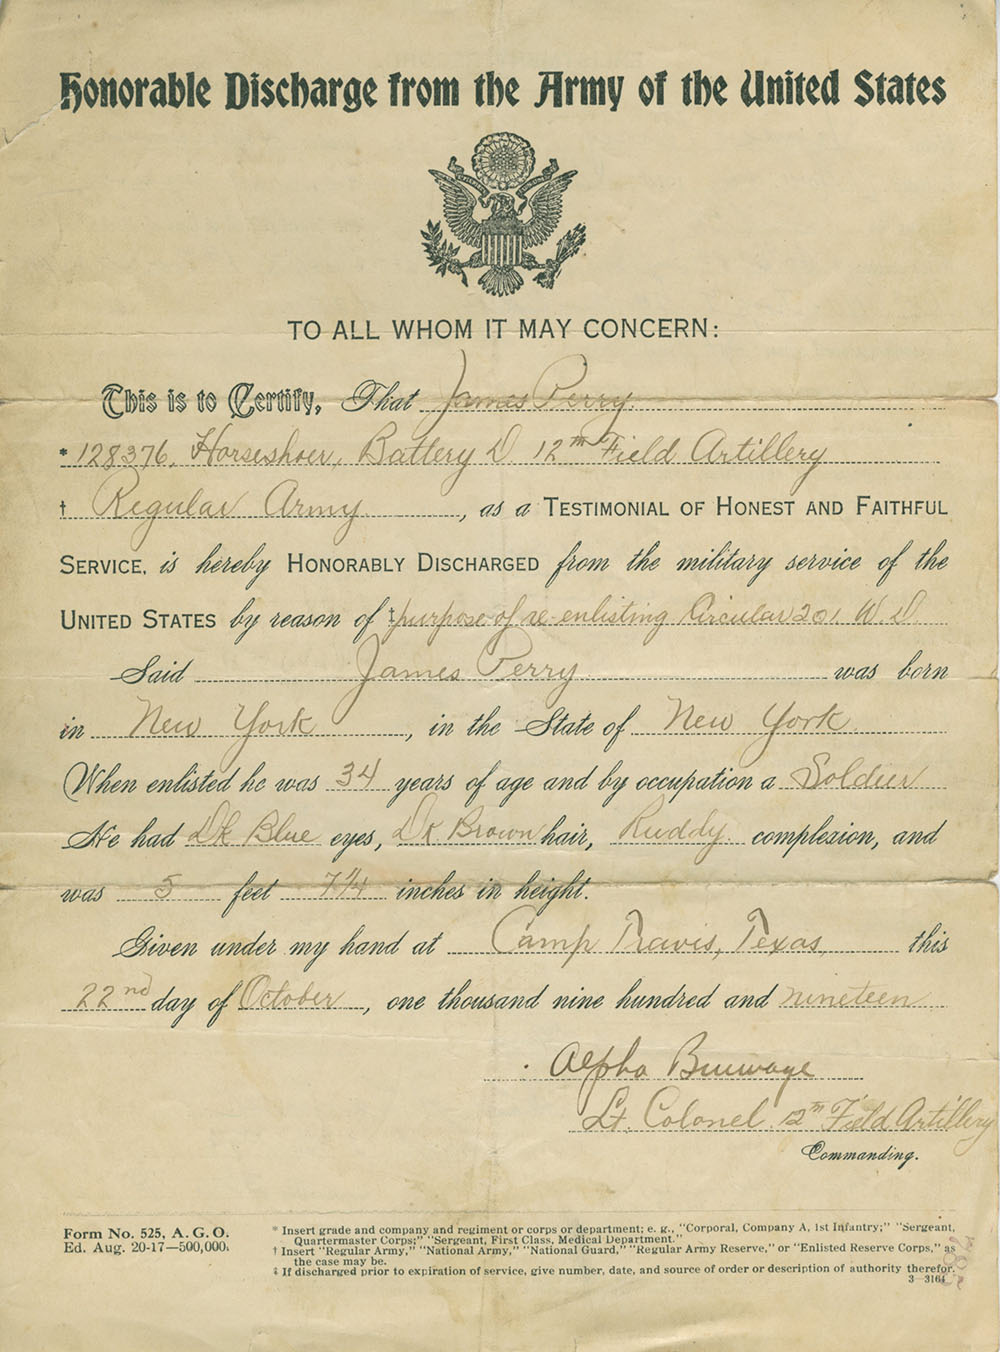 Honorable Discharge from the Army of the United States
TO ALL WHOM IT MAY CONCERN:
This is to Certify, That James Perry
* 128376, Horseshoer, Battery D. 12th Field Artillery
† Regular Army, as a TESTIMONIAL OF HONEST AND FAITHFUL
SERVICE, is hereby HONORABLY DISCHARGED from the military service of the
UNITED STATES by reason of ‡ purpose of re-enlisting Circular 201. W. D.
Said James Perry was born
in New York, in the State of New York
When enlisted he was 34 years of age and by occupation a Soldier
He had Dk Blue eyes, Dk Brown hair, Ruddy complexion, and
was 5 feet 7 1/4 inches in height.
Given under my hand at Camp Travis, Texas, this
22nd day of October, one thousand nine hundred and nineteen
Alpha
Lt. Colonel 12th Field Artillery
Commanding.
Form No. 525, A. G. O.
Ed. Aug. 20-17—500,000.
* Insert grade and company and regiment or corps or department; e. g., "Corporal, Company A, 1st Infantry;" "Sergeant,
Quartermaster Corps;" "Sergeant, First Class, Medical Department."
† Insert "Regular Army," "National Army," "National Guard," "Regular Army Reserve," or "Enlisted Reserve Corps," as
the case may be.
‡ If discharged prior to expiration of service, give number, date, and source of order or description of authority therefor.
3—3164